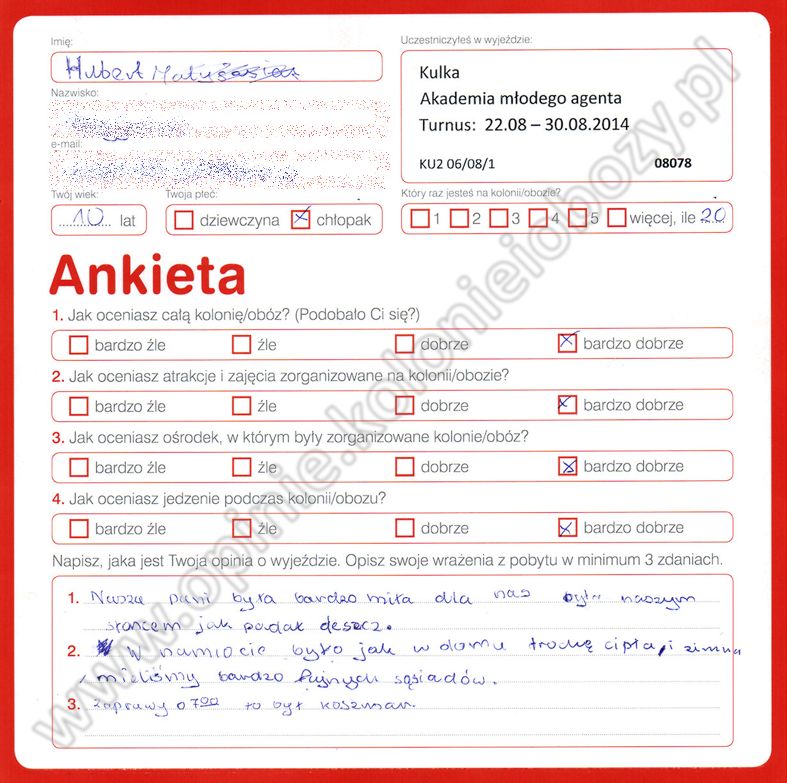 Imię:
Hubert
Nazwisko:
e-mail:
Twój wiek:
10 lat
Twoja płeć:
dziewczyna chłopak
Uczestniczyłeś w wyjeździe:
Kulka
Akademia młodego agenta
Turnus: 22.08 – 30.08.2014
KU2 06/08/1 08078
Który raz jesteś na kolonii/obozie?
1 2 3 4 5 więcej, ile 20
Ankieta
1. Jak oceniasz całą kolonię/obóz? (Podobało Ci się?)
bardzo źle źle dobrze bardzo dobrze
2. Jak oceniasz atrakcje i zajęcia zorganizowane na kolonii/obozie?
bardzo źle źle dobrze bardzo dobrze
3. Jak oceniasz ośrodek, w którym były zorganizowane kolonie/obóz?
bardzo źle źle dobrze bardzo dobrze
4. Jak oceniasz jedzenie podczas kolonii/obozu?
bardzo źle źle dobrze bardzo dobrze
Napisz, jaka jest Twoja opinia o wyjeździe. Opisz swoje wrażenia z pobytu w minimum 3 zdaniach.
1. Nasza pani była bardzo miła dla nas była naszym
słońcem jak padał deszcz.
2. W namiocie było jak w domu trochę cipła, i zimna
mieliśmy bardzo fajnych sąsiadów.
3. zaprawy o 7:00 to był koszmar.
www.opinie.kolonieiobozy.pl